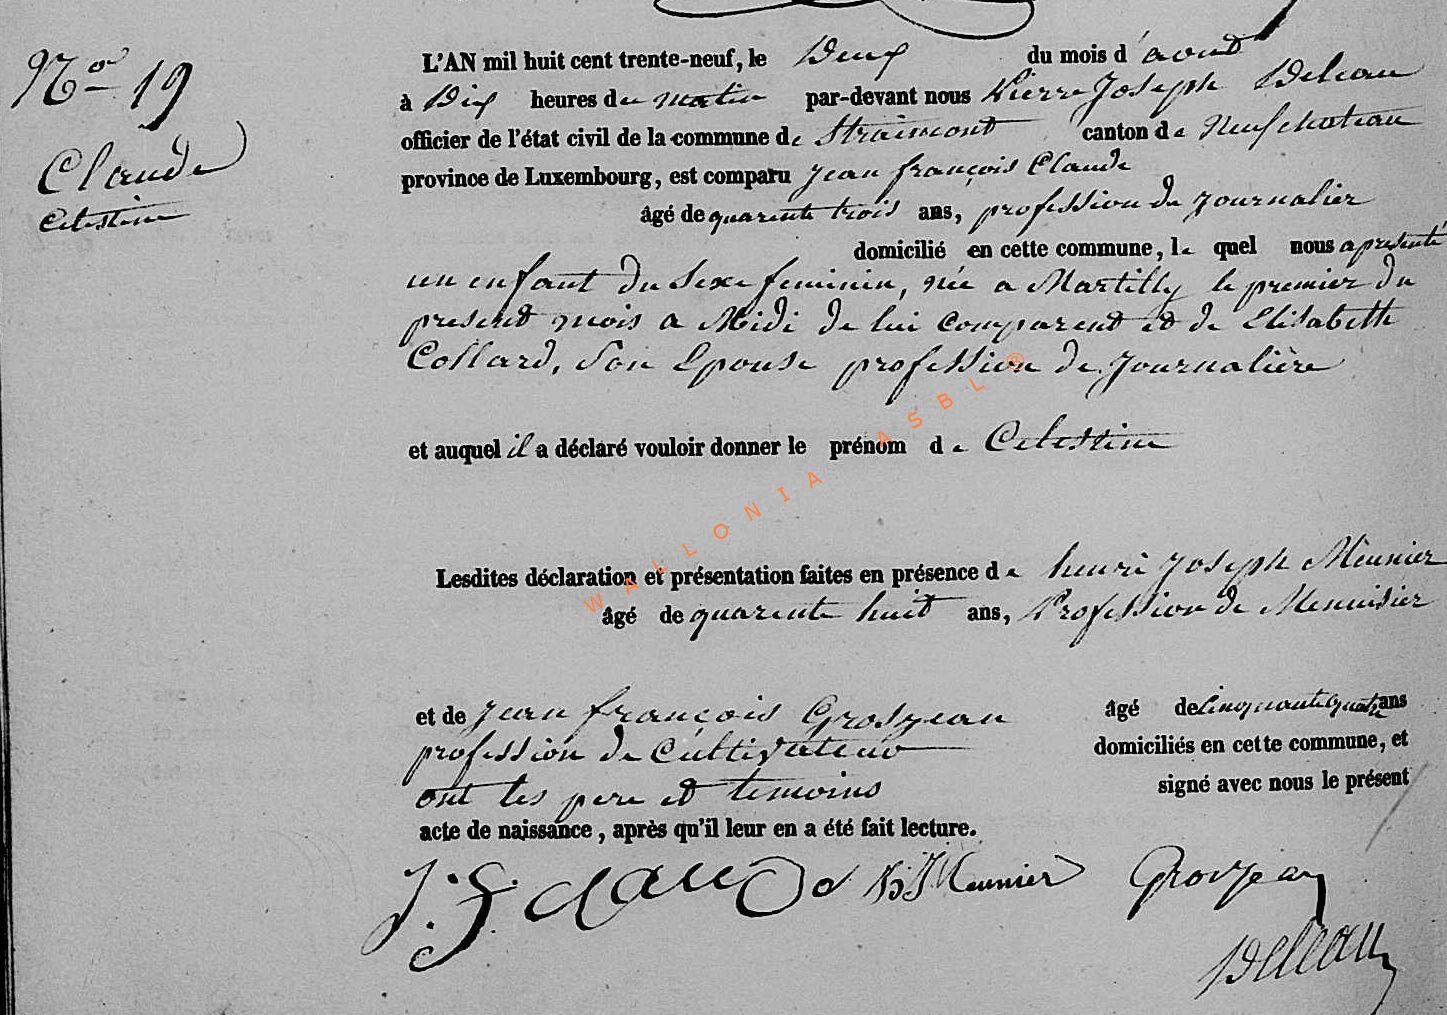 No 19
Claude
Celestine
L'AN mil huit cent trente-neuf, le Deux du mois d'aout
à Dix heures du matin par-devant nous Pierre Joseph Deleau
officier de l'état civil de la commune de Straimont canton de Neufchateau
province de Luxembourg, est comparu Jean françois Claude
âgé de quarente trois ans, profession de journalier
domicilié en cette commune, le quel nous a presenté
un enfant du sexe feminin, née a Martilly le premier du
present mois a Midi de lui comparent et de Elisabeth
Collard, son Epouse profession de journalière
et auquel il a déclaré vouloir donner le prénom de Celestine
Lesdites déclaration et présentation faites en présence de henri joseph Meunier
âgé de quarente huit ans, Profession de Menuisier
et de jean françois Grosjean âgé de Cinquante quatre ans
profession de Cultivateur domiciliés en cette commune, et
ont les pere et temoins signé avec nous le présent
acte de naissance, après qu'il leur en a été fait lecture.
J. f. Claude HJ Meunier Grosjean
Deleau
WALLONIA ASBL ®